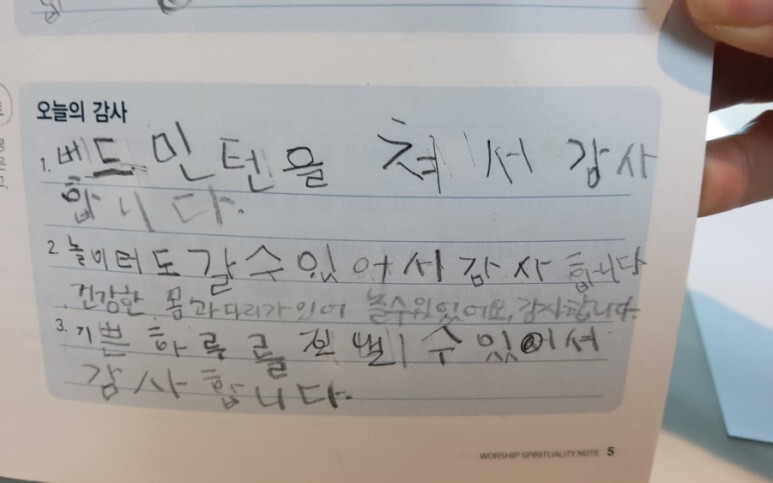 오늘의 감사
1. 베드민턴을 쳐서 감사
합니다.
2. 놀이러도갈수있어서감사합니다
건강한 몸과다리가있어 놀수있어요. 감사합니다.
3. 기쁜하루를 보낼 수있어서
감사합니다.
WORSHIP SPIRITUALITY NOTE 5